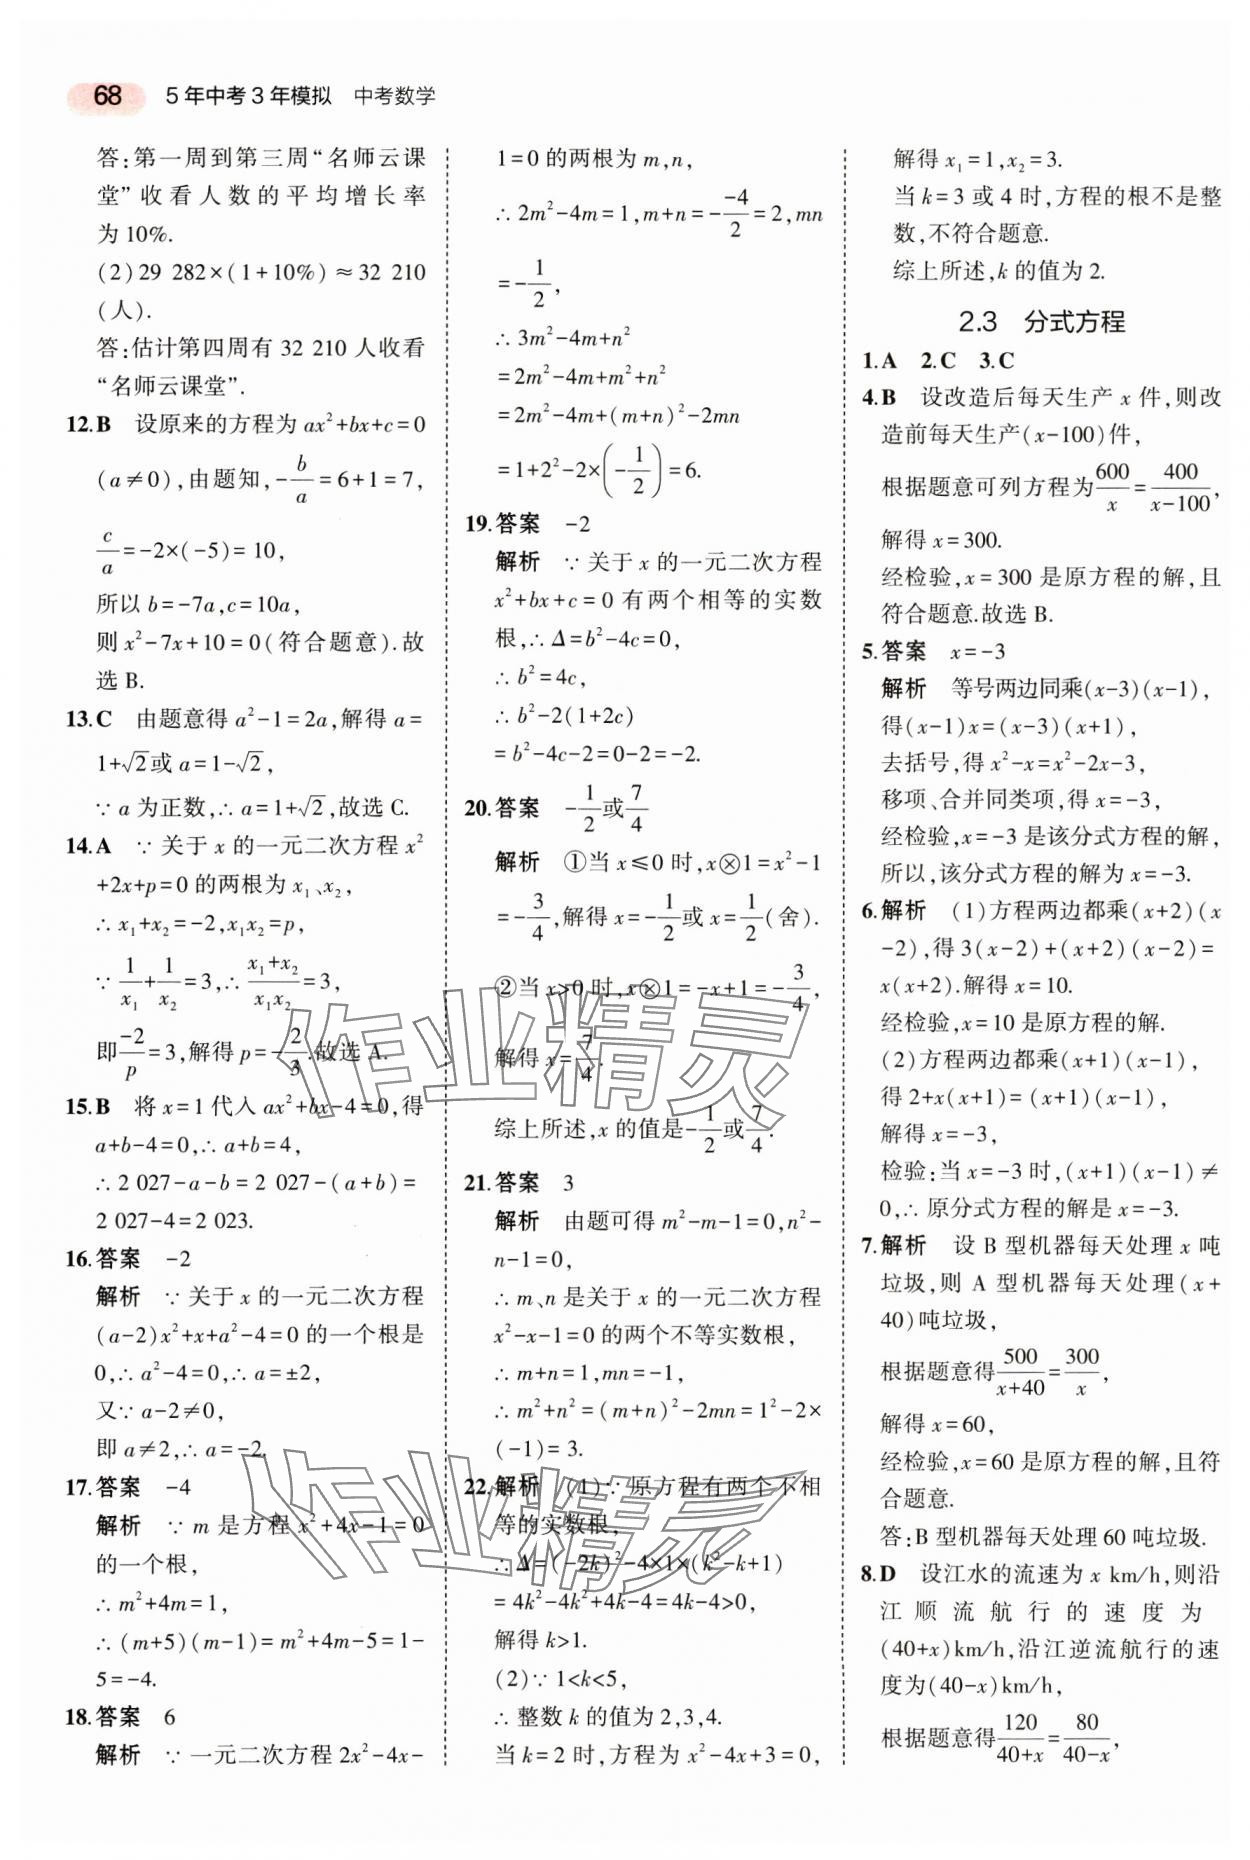 68 5年中考3年模拟 中考数学
答:第一周到第三周“名师云课
堂”收看人数的平均增长率
为10%.
(2)29 282×(1+10%)≈32 210
(人).
答:估计第四周有32 210人收看
“名师云课堂”.
12.B 设原来的方程为ax²+bx+c=0
(a≠0),由题知,-b/a=6+1=7,
c/a=-2×(-5)=10,
所以b=-7a,c=10a,
则x²-7x+10=0(符合题意).故
选B.
13.C 由题意得a²-1=2a,解得a=
1+√2或a=1-√2,
∵a为正数,∴a=1+√2,故选C.
14.A ∵关于x的一元二次方程x²
+2x+p=0的两根为x₁、x₂,
∴x₁+x₂=-2,x₁x₂=p,
∵1/x₁+1/x₂=3,∴(x₁+x₂)/(x₁x₂)=3,
即-2/p=3,解得p=-2/3.故选A.
15.B 将x=1代入ax²+bx-4=0,得
a+b-4=0,∴a+b=4,
∴2 027-a-b=2 027-(a+b)=
2 027-4=2 023.
16.答案 -2
解析 ∵关于x的一元二次方程
(a-2)x²+x+a²-4=0的一个根是
0,∴a²-4=0,∴a=±2,
又∵a-2≠0,
即a≠2,∴a=-2.
17.答案 -4
解析 ∵m是方程x²+4x-1=0
的一个根,
∴m²+4m=1,
∴(m+5)(m-1)=m²+4m-5=1-
5=-4.
18.答案 6
解析 ∵一元二次方程2x²-4x-
1=0的两根为m,n,
∴2m²-4m=1,m+n=-(-4)/2=2,mn
=-1/2,
∴3m²-4m+n²
=2m²-4m+m²+n²
=2m²-4m+(m+n)²-2mn
=1+2²-2×(-1/2)=6.
19.答案 -2
解析 ∵关于x的一元二次方程
x²+bx+c=0有两个相等的实数
根,∴Δ=b²-4c=0,
∴b²=4c,
∴b²-2(1+2c)
=b²-4c-2=0-2=-2.
20.答案 -1/2或7/4
解析 ①当x≤0时,x⊗1=x²-1
=-3/4,解得x=-1/2或x=1/2(舍).
②当x>0时,x⊗1=-x+1=-3/4,
解得x=7/4.
综上所述,x的值是-1/2或7/4.
21.答案 3
解析 由题可得m²-m-1=0,n²-
n-1=0,
∴m、n是关于x的一元二次方程
x²-x-1=0的两个不等实数根,
∴m+n=1,mn=-1,
∴m²+n²=(m+n)²-2mn=1²-2×
(-1)=3.
22.解析 (1)∵原方程有两个不相
等的实数根,
∴Δ=(-2k)²-4×1×(k²-k+1)
=4k²-4k²+4k-4=4k-4>0,
解得k>1.
(2)∵1<k<5,
∴整数k的值为2,3,4.
当k=2时,方程为x²-4x+3=0,
解得x₁=1,x₂=3.
当k=3或4时,方程的根不是整
数,不符合题意.
综上所述,k的值为2.
2.3 分式方程
1.A 2.C 3.C
4.B 设改造后每天生产x件,则改
造前每天生产(x-100)件,
根据题意可列方程为600/x=400/(x-100),
解得x=300.
经检验,x=300是原方程的解,且
符合题意.故选B.
5.答案 x=-3
解析 等号两边同乘(x-3)(x-1),
得(x-1)x=(x-3)(x+1),
去括号,得x²-x=x²-2x-3,
移项、合并同类项,得x=-3,
经检验,x=-3是该分式方程的解,
所以,该分式方程的解为x=-3.
6.解析 (1)方程两边都乘(x+2)(x
-2),得3(x-2)+(x+2)(x-2)=
x(x+2).解得x=10.
经检验,x=10是原方程的解.
(2)方程两边都乘(x+1)(x-1),
得2+x(x+1)=(x+1)(x-1),
解得x=-3,
检验:当x=-3时,(x+1)(x-1)≠
0,∴原分式方程的解是x=-3.
7.解析 设B型机器每天处理x吨
垃圾,则A型机器每天处理(x+
40)吨垃圾,
根据题意得500/(x+40)=300/x,
解得x=60,
经检验,x=60是原方程的解,且符
合题意.
答:B型机器每天处理60吨垃圾.
8.D 设江水的流速为x km/h,则沿
江顺流航行的速度为
(40+x)km/h,沿江逆流航行的速
度为(40-x)km/h,
根据题意得120/(40+x)=80/(40-x),
作业精灵
作业精灵